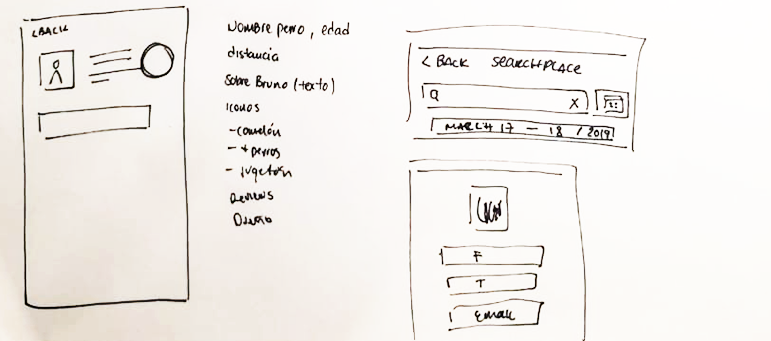 < BACK
Nombre perro, edad
distancia
Sobre Bruno (texto)
Iconos
- comilón
- + perros
- juguetón
Reviews
Dueño
< BACK SEARCH PLACE
Q X
MARCH 17 - 18 / 2019
F
T
EMAIL